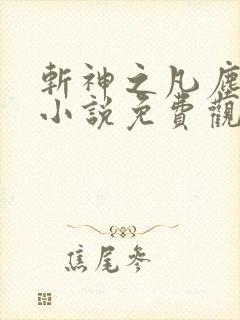 斬神之凡塵
小說免費觀
焦尾參